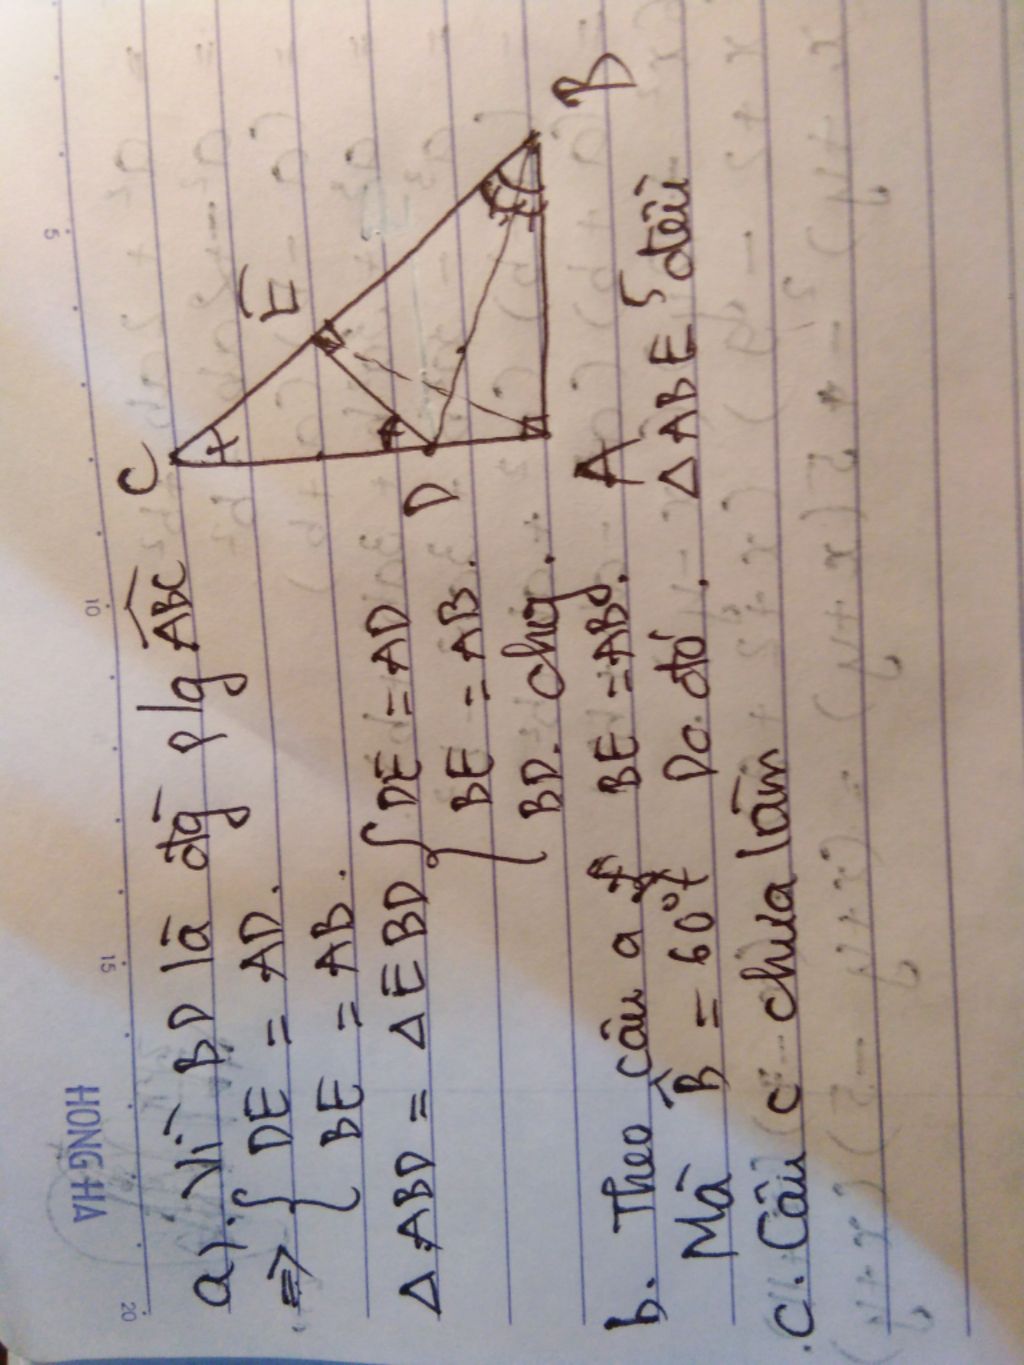 HONG HA
5
10
15
20
C
E
B
D
A
a). Vì BD là đg p/g ABC
⇒ { DE = AD.
BE = AB.
Δ ABD = Δ EBD { DE = AD
BE = AB.
BD. chg.
b. Theo câu a BE = AB.
Mà B̂ = 60° Do đó. Δ ABE đều
c. Câu c chưa làm